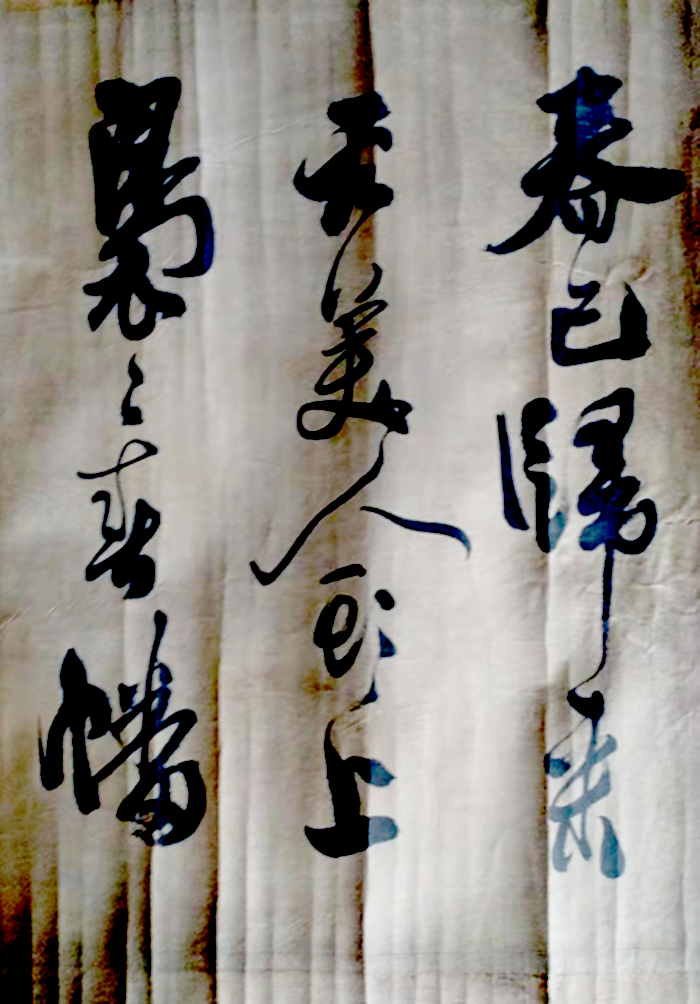 春已歸來
看美人頭上
裊〻春幡